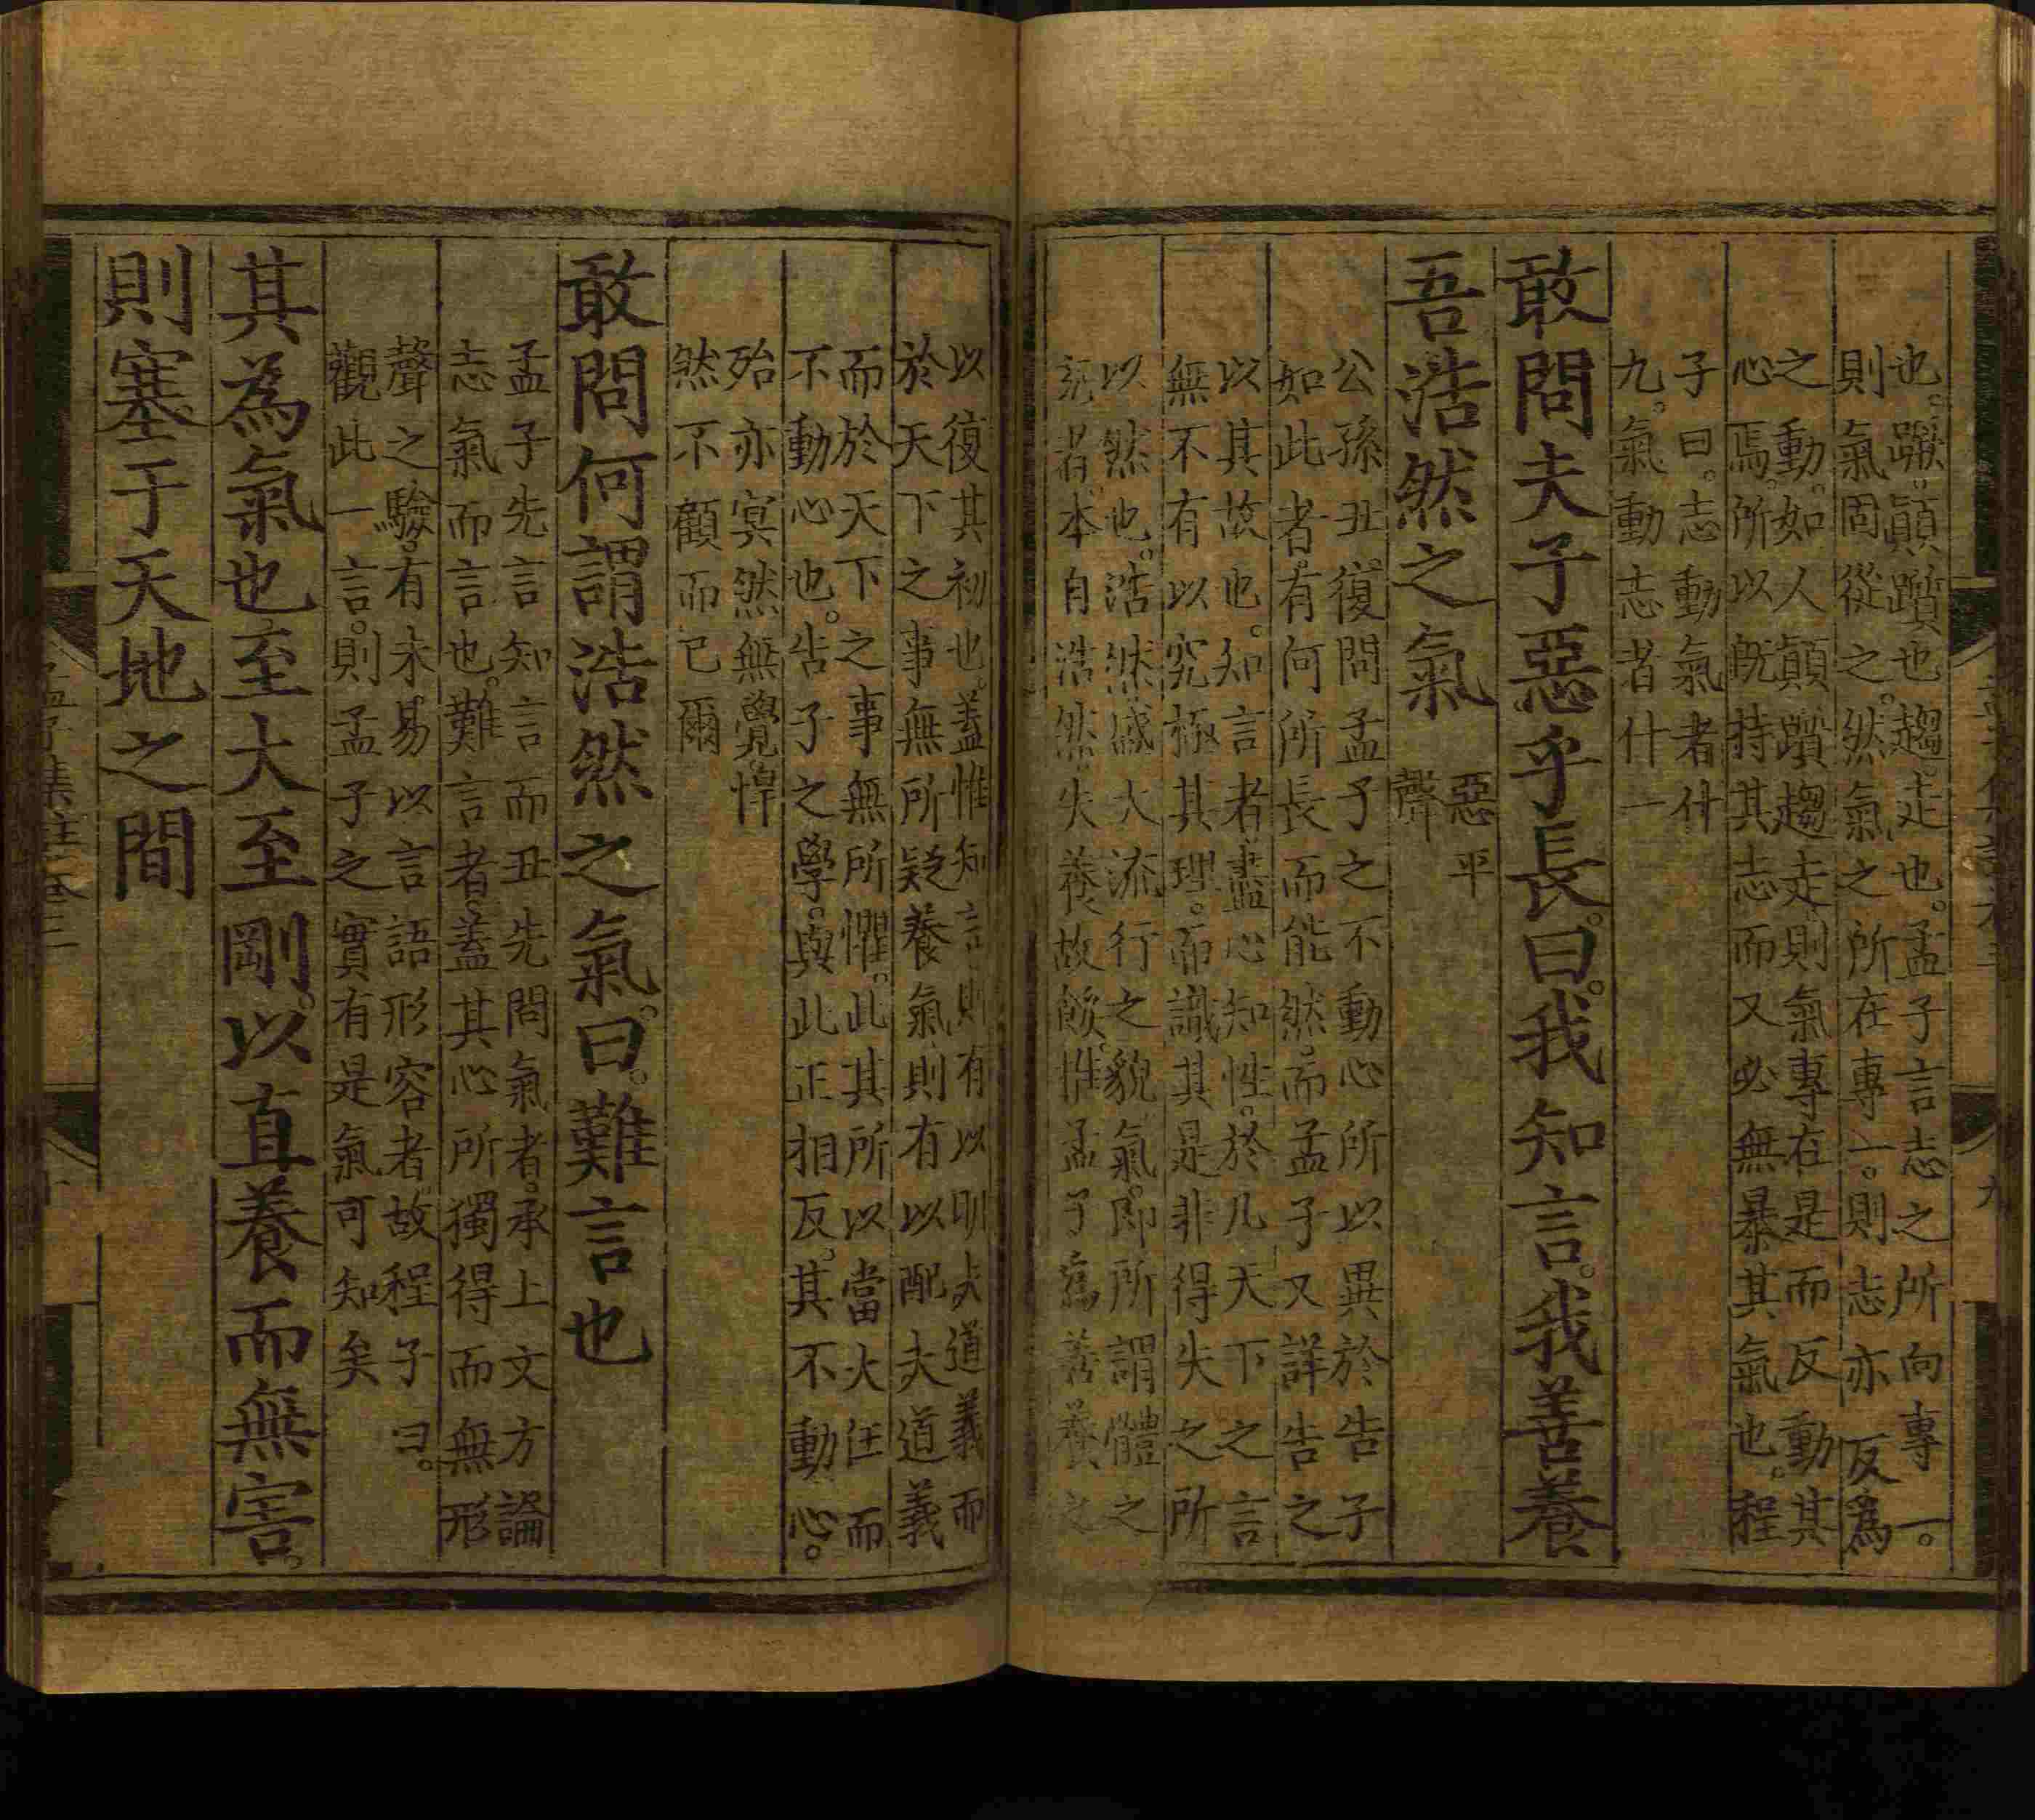 也。蹶。顛躓也。趨。走也。孟子言志之所向專一。
則氣固從之。然氣之所在專一。則志亦反爲
之動。如人顛躓趨走。則氣專在是而反動其
心焉。所以旣持其志而又必無暴其氣也。程
子曰。志動氣者什
九。氣動志者什一
敢問夫子惡乎長。曰。我知言。我善養
吾浩然之氣
惡平
聲
公孫丑。復問孟子之不動心所以異於告子
如此者。有何所長而能然。而孟子又詳告之
以其故也。知言者。盡心知性。於凡天下之言
無不有以究極其理。而識其是非得失之所
以然也。浩然。盛大流行之貌。氣。即所謂體之
充者。本自浩然。失養故餒。惟孟子爲善養之
以復其初也。蓋惟知言則有以明夫道義而
於天下之事無所疑。養氣則有以配夫道義
而於天下之事無所懼。此其所以當大任而
不動心也。告子之學。與此正相反。其不動心。
殆亦冥然無覺。悍
然不顧而已爾
敢問何謂浩然之氣。曰。難言也
孟子先言知言而丑先問氣者。承上文方論
志氣而言也。難言者。蓋其心所獨得而無形
聲之驗。有未易以言語形容者。故程子曰。
觀此一言。則孟子之實有是氣可知矣
其為氣也至大至剛。以直養而無害。
則塞于天地之間
孟子集註卷三
十